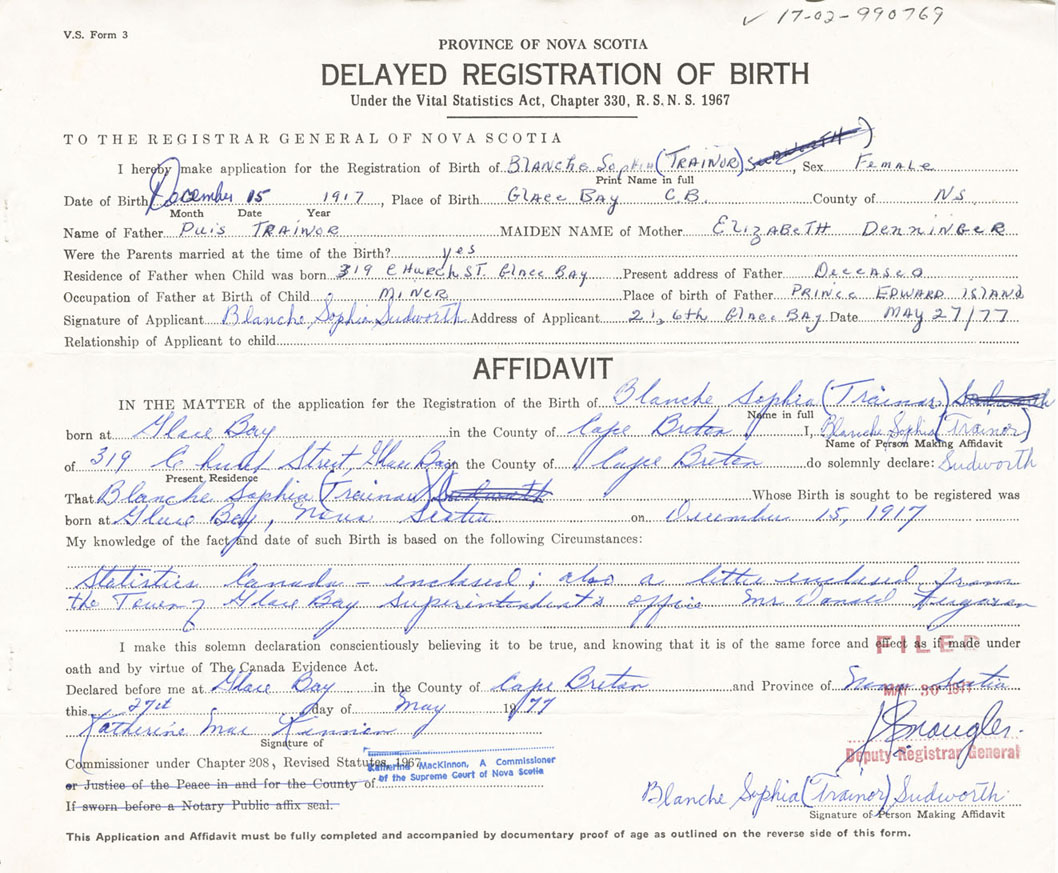 ✓ 17-02-990769
V.S. Form 3
PROVINCE OF NOVA SCOTIA
DELAYED REGISTRATION OF BIRTH
Under the Vital Statistics Act, Chapter 330, R.S.N.S. 1967
TO THE REGISTRAR GENERAL OF NOVA SCOTIA
I hereby make application for the Registration of Birth of Blanche Sophia (TRAINOR) Sex Female
Print Name in full
Date of Birth December 15 1917, Place of Birth Glace Bay C.B. County of NS
Month Date Year
Name of Father Puis TRAINOR MAIDEN NAME of Mother ELIZABETH DENNINGER
Were the Parents married at the time of the Birth? yes
Residence of Father when Child was born 319 CHURCH ST. Glace BAY Present address of Father DECEASED
Occupation of Father at Birth of Child MINER Place of birth of Father PRINCE EDWARD ISLAND
Signature of Applicant Blanche Sophia Sudworth Address of Applicant 21, 6th Glace BAY Date MAY 27/77
Relationship of Applicant to child
AFFIDAVIT
IN THE MATTER of the application for the Registration of the Birth of Blanche Sophia (Trainor) Sudworth
Name in full
born at Glace Bay in the County of Cape Breton I, Blanche Sophia (Trainor)
Name of Person Making Affidavit
of 319 Church Street, Glace Bay in the County of Cape Breton do solemnly declare: Sudworth
Present Residence
That Blanche Sophia (Trainor) Sudworth Whose Birth is sought to be registered was
born at Glace Bay, Nova Scotia on December 15, 1917
My knowledge of the fact and date of such Birth is based on the following Circumstances:
Statistics Canada – enclosed; also a letter enclosed from
the Town of Glace Bay Superintendent's office Mr Donald Ferguson
I make this solemn declaration conscientiously believing it to be true, and knowing that it is of the same force and effect as if made under
FILED
oath and by virtue of The Canada Evidence Act.
Declared before me at Glace Bay in the County of Cape Breton and Province of Nova Scotia
MAY 30 1977
this 27st day of May 1977
Katherine MacKinnon
Signature of
Deputy Registrar General
Commissioner under Chapter 208, Revised Statutes, 1967
Katherine MacKinnon, A Commissioner
of the Supreme Court of Nova Scotia
or Justice of the Peace in and for the County of
If sworn before a Notary Public affix seal.
Blanche Sophia (Trainor) Sudworth
Signature of Person Making Affidavit
This Application and Affidavit must be fully completed and accompanied by documentary proof of age as outlined on the reverse side of this form.